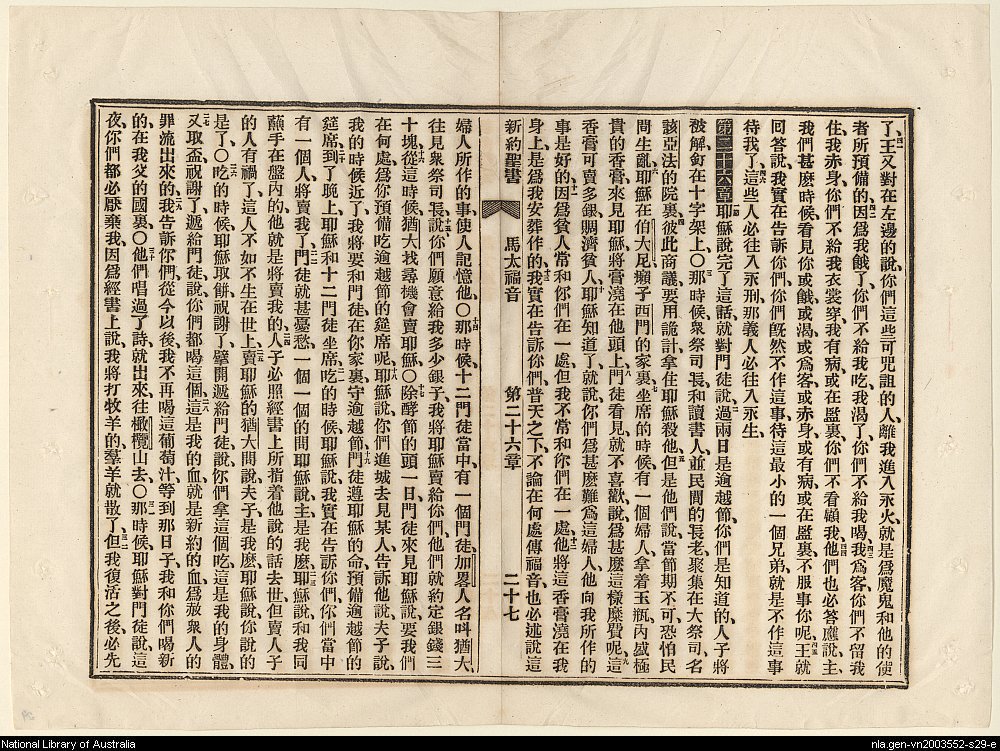 了、王又對在左邊的說、你們這些可咒詛的人、離我進入永火、就是爲魔鬼和他的使
者所預備的、因爲我餓了、你們不給我吃、我渴了、你們不給我喝、我爲客、你們不留我
住、我赤身、你們不給我衣裳穿、我有病、或在監裏、你們不看顧我、他們也必答應說、主
我們甚麽時候看見你或餓、或渴、或爲客、或赤身、或有病、或在監裏、不服事你呢、王就
回答說、我實在告訴你們、你們旣然不作這事、待這最小的一個兄弟、就是不作這事
待我了、這些人必往入永刑、那義人必往入永生、
第二十六章 耶穌說完了這話、就對門徒說、過兩日是逾越節、你們是知道的、人子將
被解釘在十字架上、〇那時候、衆祭司長和讀書人、並民間的長老、聚集在大祭司名
該亞法的院裏、彼此商議、要用詭計拿住耶穌殺他、但是他們說、當節期不可、恐怕民
間生亂、耶穌在伯大尼癩子西門的家裏、坐席的時候、有一個婦人、拿着玉瓶、內盛極
貴的香膏來見耶穌、將膏澆在他頭上、門徒看見、就不喜歡、說、爲甚麽這樣糜費呢、這
香膏可賣多銀、賙濟貧人、耶穌知道了、就說、你們爲甚麽難爲這婦人、他向我所作的
事是好的、因爲貧人常和你們在一處、但我不常和你們在一處、他將這香膏澆在我
身上、是爲我安葬作的、我實在告訴你們、普天之下、不論在何處傳福音、也必述說這
新約聖書 馬太福音 第二十六章 二十七
婦人所作的事、使人記憶他、〇那時候、十二門徒當中有一個門徒、加畧人名呌猶大、
往見衆祭司長、說、你們願意給我多少銀子、我將耶穌賣給你們、他們就約定銀錢三
十塊、從這時候、猶大找尋機會賣耶穌、〇除酵節的頭一日、門徒來見耶穌說、要我們
在何處爲你預備吃逾越節的筵席呢、耶穌說、你們進城去、見某人、告訴他說、夫子說、
我的時候近了、我將要和門徒在你家裏守逾越節、門徒遵耶穌的命、預備逾越節的
筵席、到了晚上、耶穌和十二門徒坐席、吃的時候、耶穌說、我實在告訴你們、你們當中
有一個人、將賣我了、門徒就甚憂愁、一個一個的問耶穌說、主是我麽、耶穌說、和我同
蘸手在盤內的、他就是將賣我的、人子必照經書上所指着他說的話去世、但賣人子
的人有禍了、這人不如不生在世上、賣耶穌的猶大問說、夫子是我麽、耶穌說、你說的
是了、〇吃的時候、耶穌取餅祝謝了、擘開遞給門徒說、你們拿這個吃、這是我的身體、
又取盃祝謝了、遞給門徒說、你們都喝這個、這是我的血、就是新約的血、爲赦衆人的
罪流出來的、我告訴你們、從今以後、我不再喝這葡萄汁、等到那日子、我和你們喝新
的、在我父的國裏、〇他們唱過了詩、就出來、往橄欖山去、〇那時候、耶穌對門徒說、這
夜你們都必厭棄我、因爲經書上說、我將打牧羊的、羣羊就散了、但我復活之後、必先
National Library of Australia
nla.gen-vn2003552-s29-e